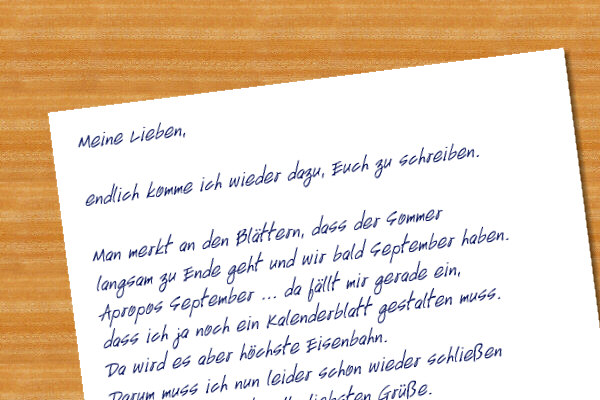 Meine Lieben,
endlich komme ich wieder dazu, Euch zu schreiben.
Man merkt an den Blättern, dass der Sommer
langsam zu Ende geht und wir bald September haben.
Apropos September ... da fällt mir gerade ein,
dass ich ja noch ein Kalenderblatt gestalten muss.
Da wird es aber höchste Eisenbahn.
Darum muss ich nun leider schon wieder schließen
liebsten Grüße.